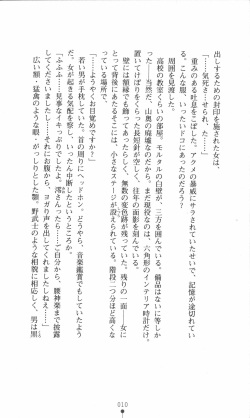 出しするための封印を施された女は、
「……気死……せられ、た……」
重みのある吐息をこぼした。アクメの暴威にサラされていたせいで、記憶が途切れてい
る。こんな
周囲を見渡した。
高校の教室くらいの部屋。モルタルの白壁が、三方を囲んでいる。備品はないに等しか
った――当然だ、山奥の廃墟なのだから――まだ現役なのは、六角形のインテリア時計だけ。
置いてけぼりをくらった長短針が空しく、往年の面影を刻んでいる。
壁には額縁でも
無数の変色跡が残っていた。残りの一面――女に
とって背後にあたるそこには、小さなステージが設えられていた。階段二つ分ほど高くな
っている場所で、
「……ようやくお目覚めですか？」
若い男が手枕していた。首の周りにヘッドホン、どうやら、音楽鑑賞でもしていたよう
だ。女が起きる気配を察し、
中断したというところか。
「ふふふ……見事なイキっぷりでしたよ、
さん……ご自分から、腰神楽まで披露
してくださいましたし……それにお腹から、ヨガり声を出してくれましたしねえ……」
広い額、猛禽のような眼、がっしりとした顎。野武士のような相貌に相応しく、男は黒
010